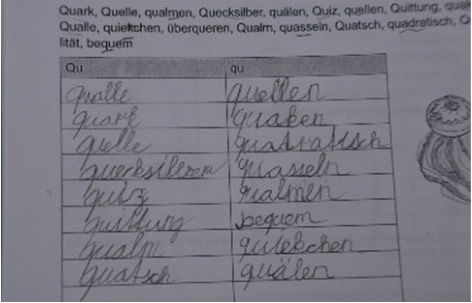 Quark, Quelle, qualmen, Quecksilber, quälen, Quiz, quellen, Quittung,
Qualle, quiekchen, überqueren, Qualm, quasseln, Quatsch, quadratisch, Q
lität, bequem
Qu qu
Qualle quellen
quark quaken
quelle quatratisch
quecksilezer quasseln
quiz qualmen
quittung bequem
qualm quiekchen
quatsch quälen